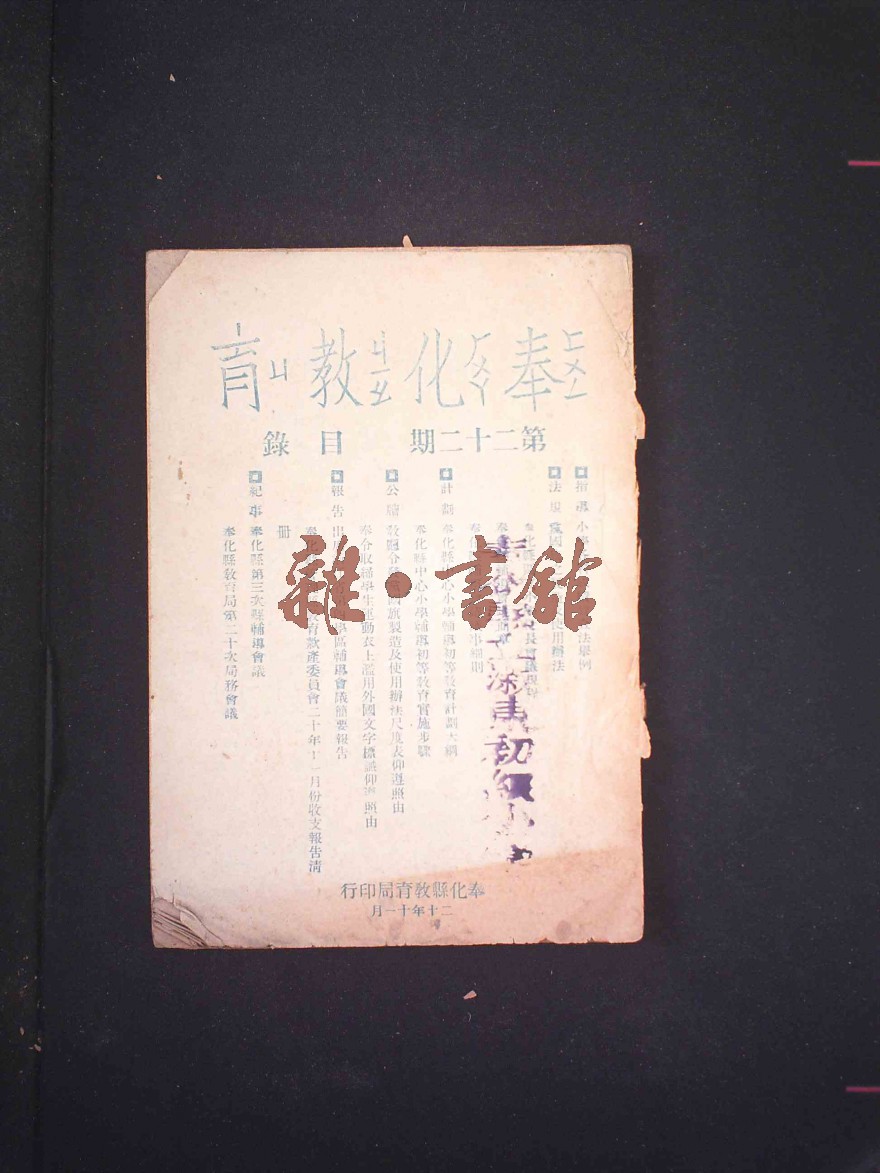 奉ㄈㄨㄥ化ㄏㄨㄚ教ㄐㄧㄠ育ㄩ
第二十二期 目錄
指導 小學 法舉例
法規 黨國 使用辦法
奉化縣 長會議規程
奉化
奉化 辦事細則
計劃 奉化縣中心小學輔導初等教育計劃大綱
奉化縣中心小學輔導初等教育實施步驟
公牘 教廳令發黨國旗製造及使用辦法尺度表仰遵照由
奉令取締學生運動衣上濫用外國文字標識仰遵照由
報告 出席 學區輔導會議簡要報告
奉化 教育款產委員會二十年十一月份收支報告清
冊
紀事 奉化縣第三次縣輔導會議
奉化縣教育局第二十次局務會議
初級小學
奉化縣教育局印行
二十年十一月
雜·書館